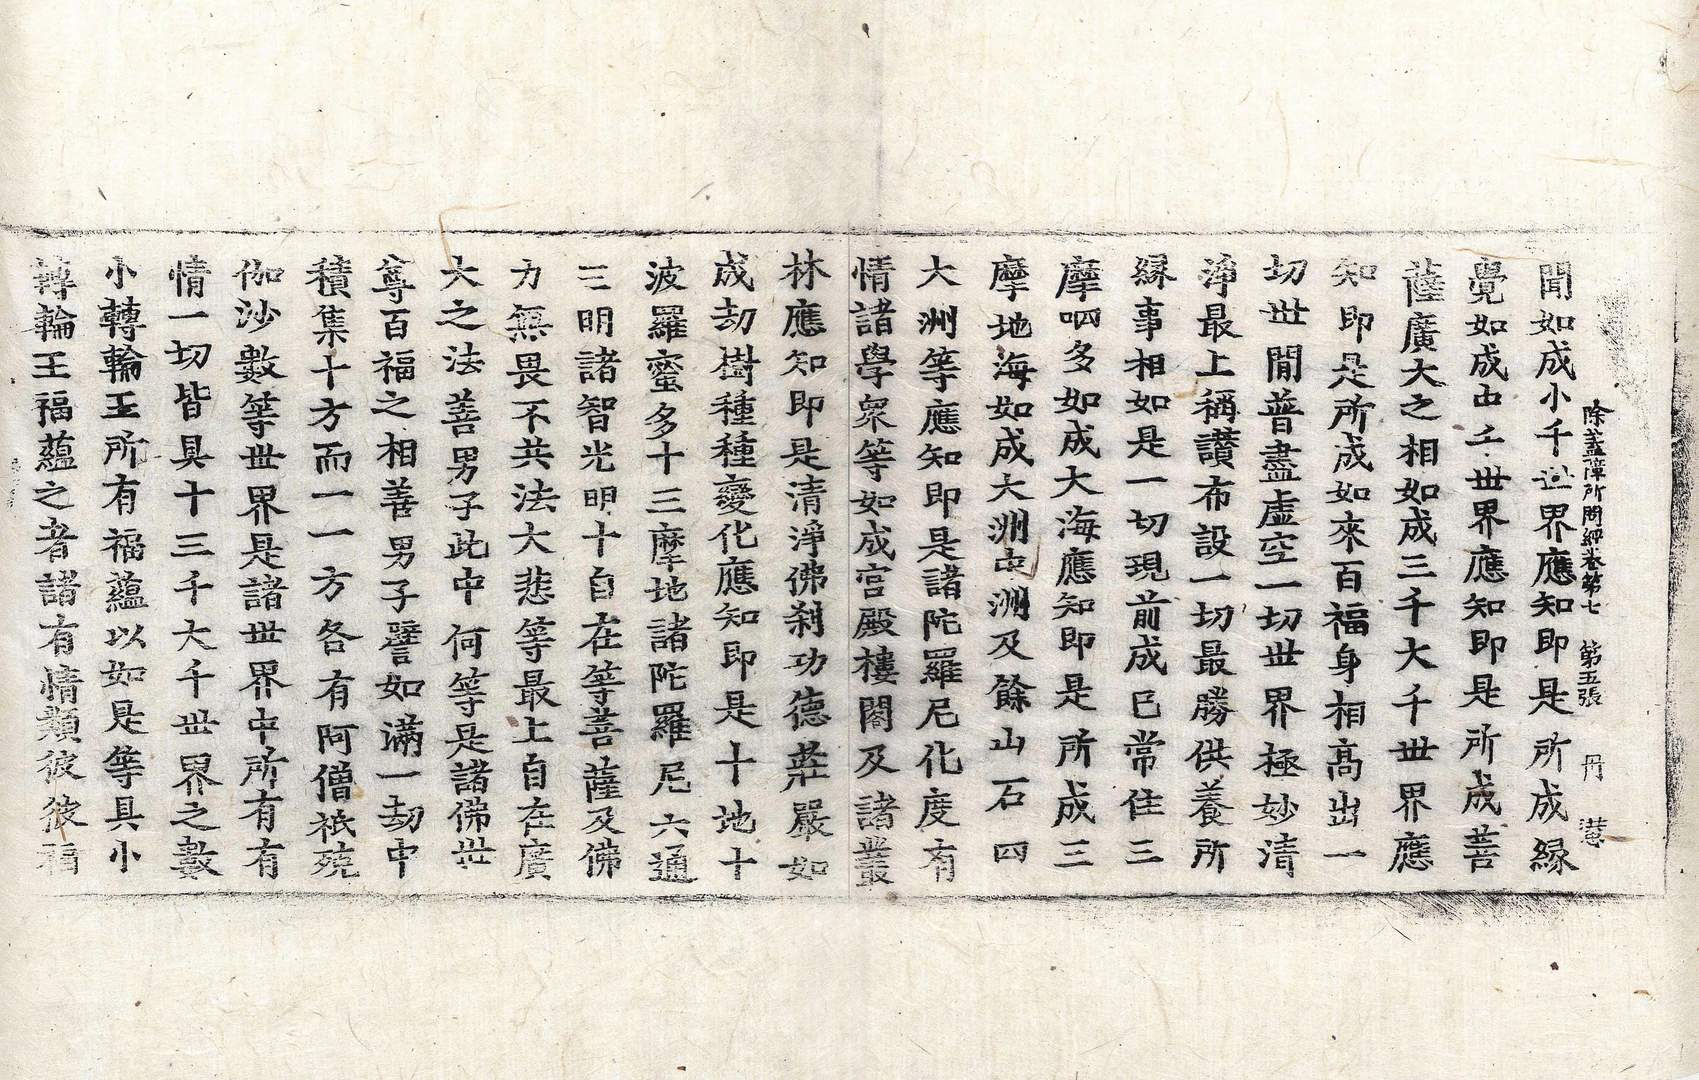 除蓋障所問經卷第七 第五張 丹
聞如成小千世界應知即是所成緣
覺如成中千世界應知即是所成菩
薩廣大之相如成三千大千世界應
知即是所成如來百福身相高出一
切世閒普盡虛空一切世界極妙清
淨最上稱讚布設一切最勝供養所
緣事相如是一切現前成已常住三
摩呬多如成大海應知即是所成三
摩地海如成大洲中洲及餘山石四
大洲等應知即是諸陀羅尼化度有
情諸學衆等如成宮殿樓閣及諸叢
林應知即是清淨佛剎功德莊嚴如
成劫樹種種變化應知即是十地十
波羅蜜多十三摩地諸陀羅尼六通
三明諸智光明十自在等菩薩及佛
力無畏不共法大悲等最上自在廣
大之法善男子此中何等是諸佛世
尊百福之相善男子譬如滿一劫中
積集十方而一一方各有阿僧祇殑
伽沙數等世界是諸世界中所有有
情一切皆具十三千大千世界之數
小轉輪王所有福蘊以如是等具小
轉輪王福蘊之者諸有情類彼彼福